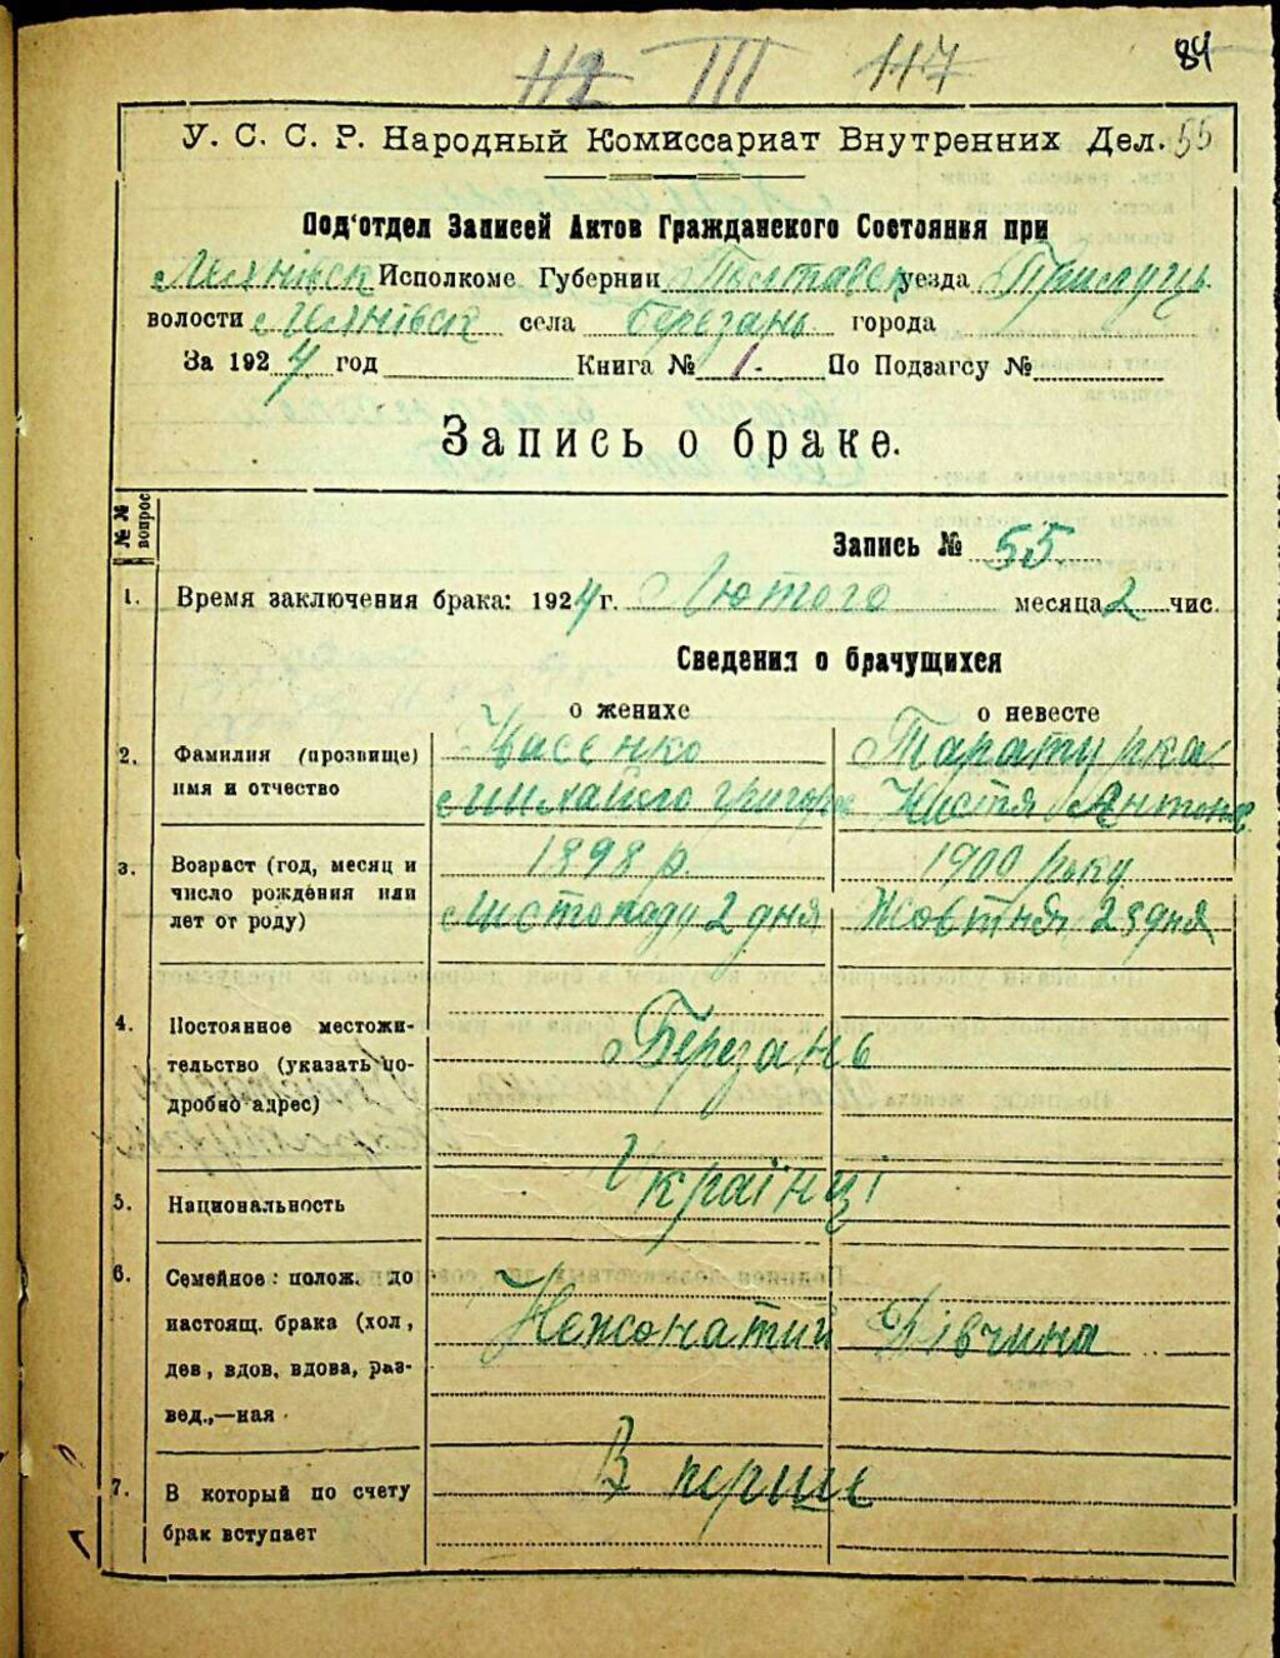 112 III 117 84
У. С. С. Р. Народный Комиссариат Внутренних Дел. 55
Под'отдел Записей Актов Гражданского Состояния при
Исполкоме Губернии Полтавск уезда Прилуць.
волости села Березань города
За 1924 год Книга № 1. По Подзагсу №
Запись о браке.
№ № вопрос
Запись № 55
1. Время заключения брака: 1924 г. Лютого месяца 2 чис.
Сведения о брачущихся
о женихе о невесте
2. Фамилия (прозвище) Касенко Таратурка
имя и отчество Михайло Григоров Настя Антонов
3. Возраст (год, месяц и 1898 р. 1900 року
число рождения или
лет от роду) Листопаду 2 дня Жовтня 28 дня
4. Постоянное местожи-
Березань
тельство (указать по-
дробно адрес)
Українці
5. Национальность
6. Семейное полож. до
настоящ. брака (хол, Нежонатий Дівчина
дев, вдов, вдова, раз-
вед.,—ная
В перше
7. В который по счету
брак вступает